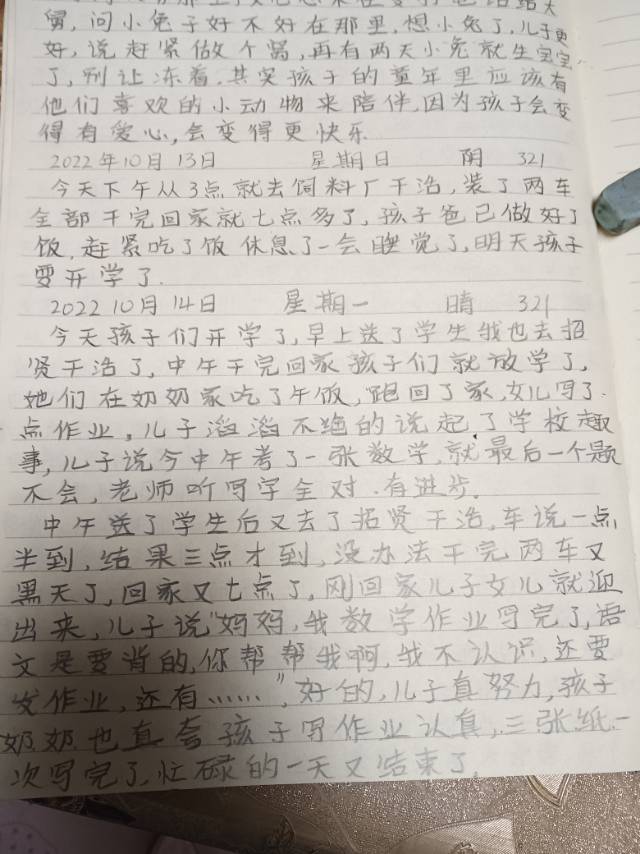 舅，问小兔子好不好在那里，想小兔了，儿子更
好，说赶紧做个窝，再有两天小兔就生宝宝
了，别让冻着。其实孩子的童年里应该有
他们喜欢的小动物来陪伴，因为孩子会变
得有爱心，会变得更快乐
2022年10月13日 星期日 阴 321
今天下午从3点就去饲料厂干活，装了两车
全部干完回家就七点多了，孩子爸已做好了
饭，赶紧吃了饭休息了一会睡觉了，明天孩子
要开学了．
2022 10月14日 星期一 晴 321
今天孩子们开学了，早上送了学生我也去招
贤干活了，中午干完回家孩子们就放学了，
她们在奶奶家吃了午饭，跑回了家，女儿写了．
点作业，儿子滔滔不绝的说起了学校趣
事，儿子说今中午考了一张数学，就最后一个题
不会，老师听写字全对．有进步．
中午送了学生后又去了招贤干活，车说一点
半到，结果三点才到，没办法干完两车又
黑天了，回家又七点了，刚回家儿子女儿就迎
出来，儿子说“妈妈，我数学作业写完了，语
文是要背的，你帮帮我啊，我不认识，还要
发作业，还有……”，好的，儿子真努力，孩子
奶奶也直夸孩子写作业认真，三张纸一
次写完了，忙碌的一天又结束了．